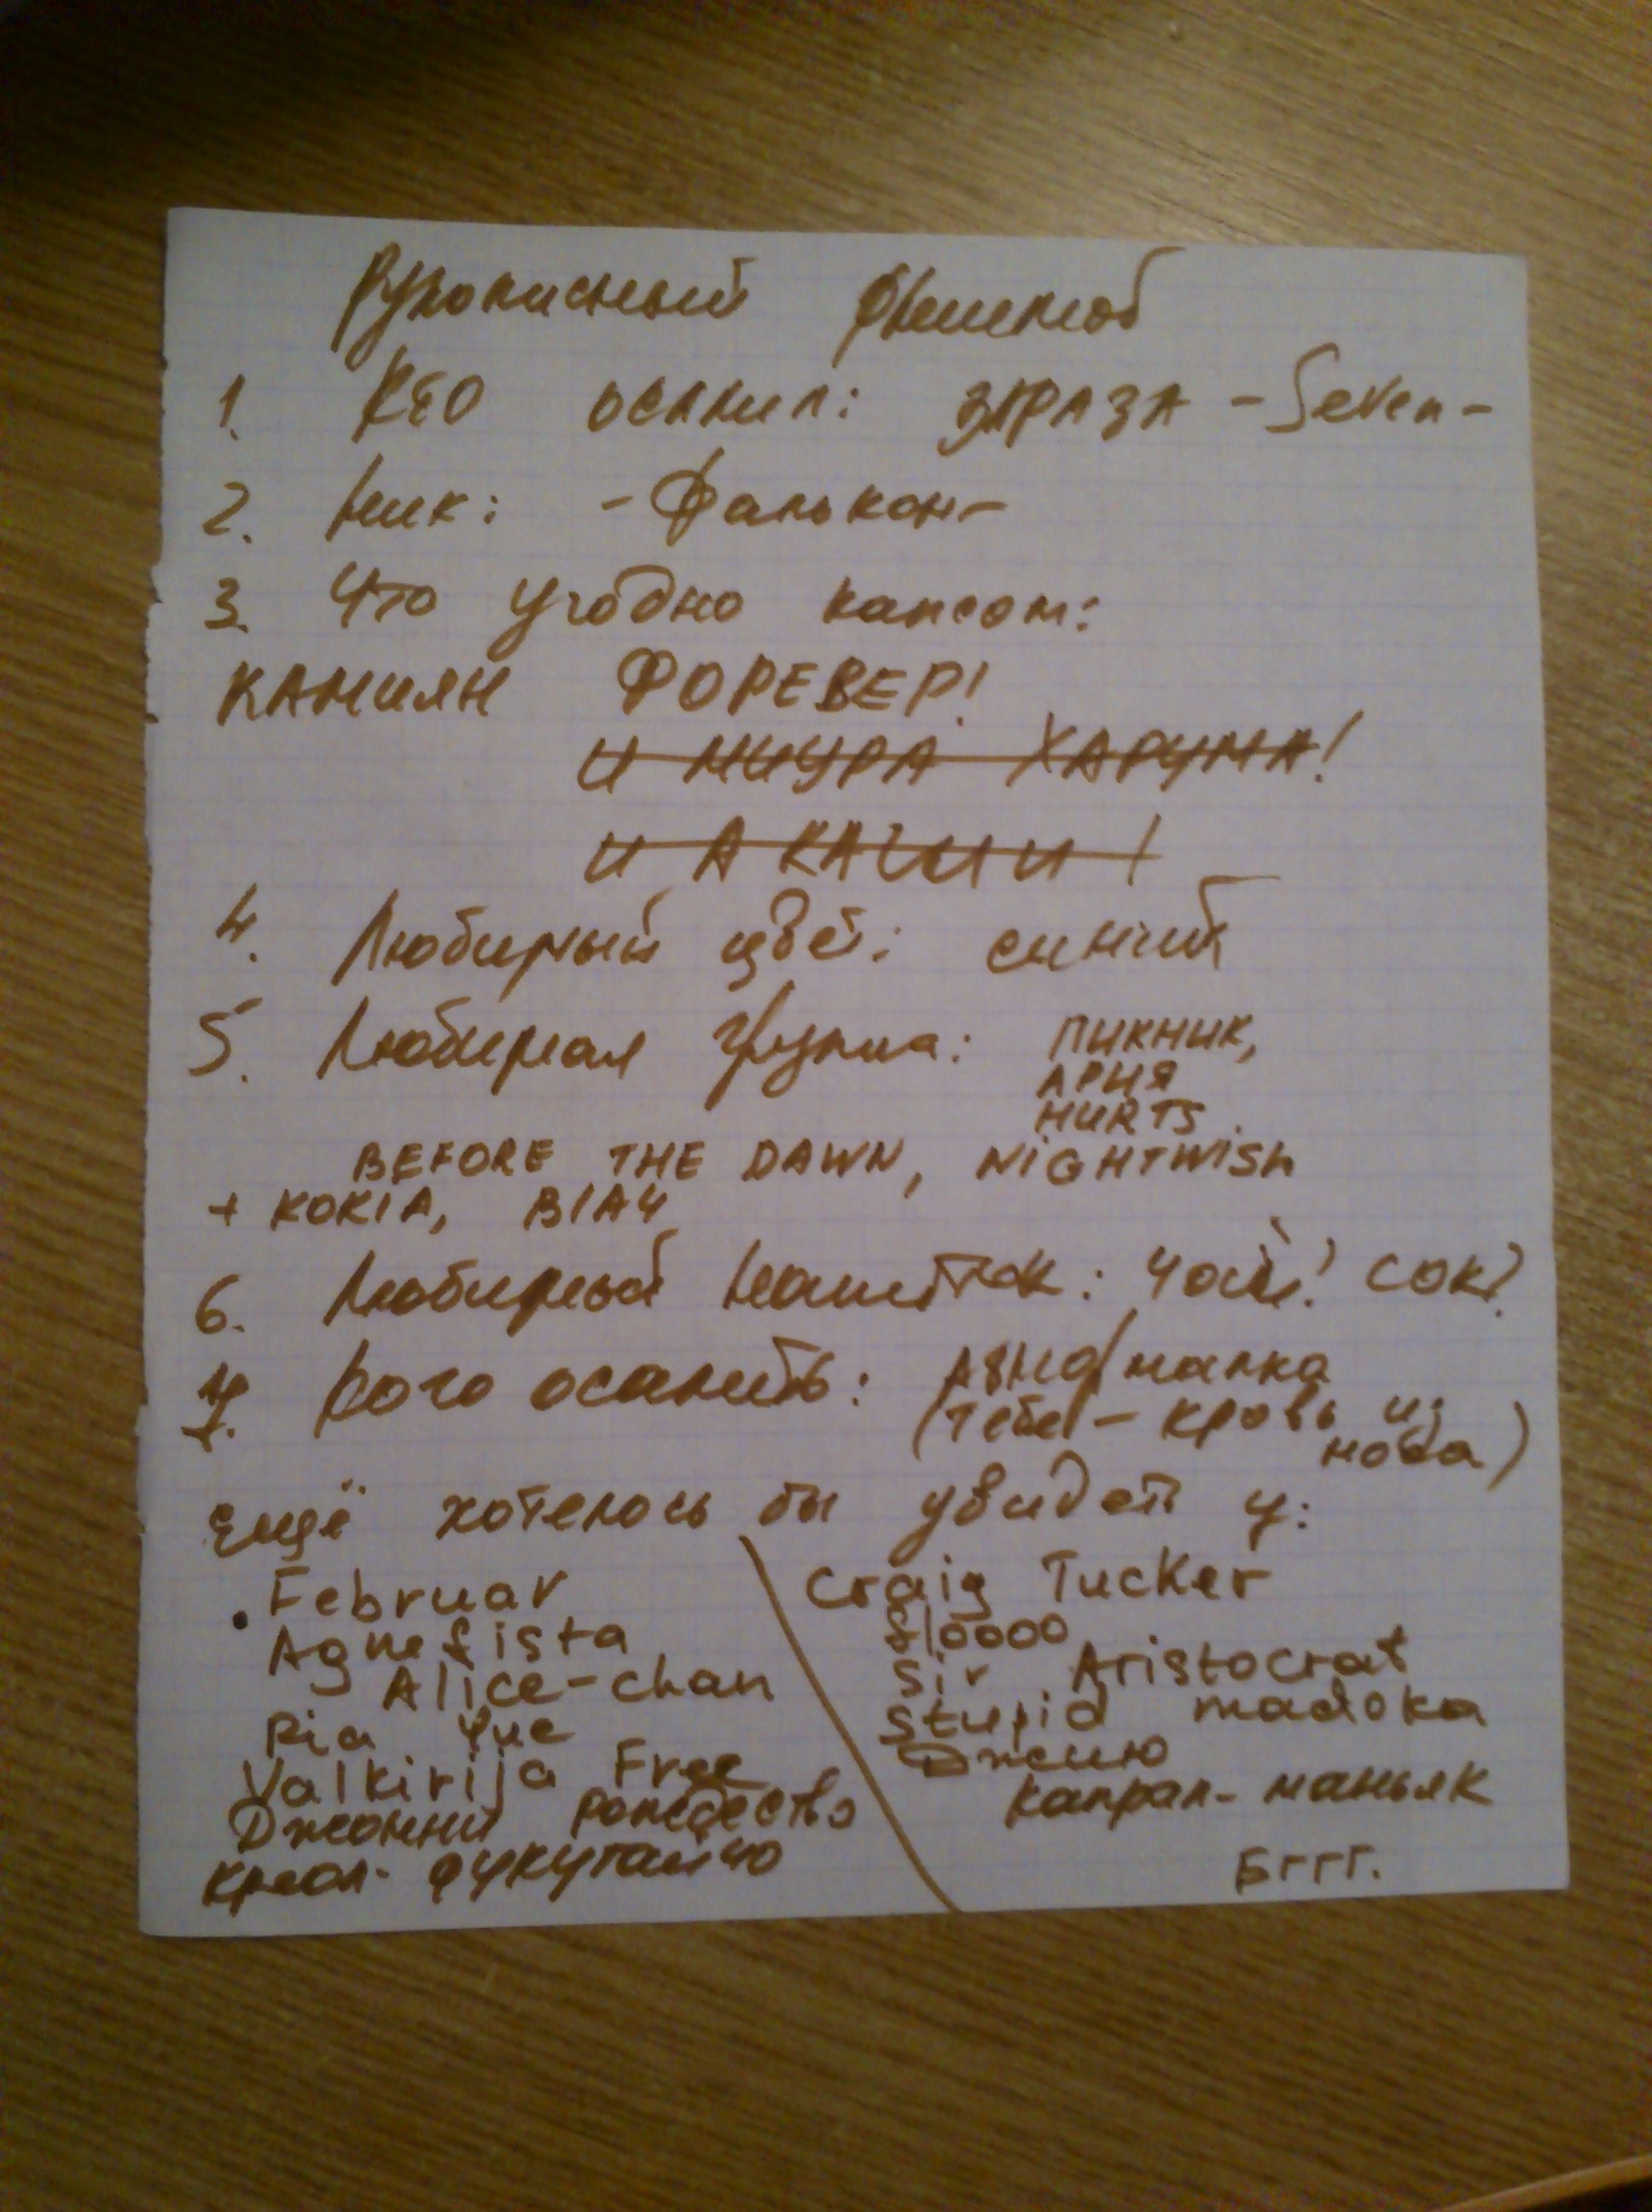 Рукописный флешмоб
1. Кто осалил: ЗАРАЗА -Seven-
2. Ник: -Фалькон-
3. Что угодно капсом:
КАМИЯН ФОРЕВЕР!
И МИУРА ХАРУМА!
И АКАЧИ И !
4. Любимый цвет: синий
5. Любимая группа: ПИКНИК,
АРИЯ
HURTS.
BEFORE THE DAWN, NIGHTWISh
+ KOKIA, B1A4
6. Любимый напиток: Чай! сок?
7. Кого осалить: манка
(тебе - кровь из
носа)
Ещё хотелось бы увидеть у:
Februar
Agnefista
Alice-chan
Ria Yue
Valkirija Free
Джонни Рождество
Креол-фукутайчо
Craig Tucker
fl0000
Sir Aristocrat
Stupid madoka
Джию
Капрал-маньяк
Бггг.